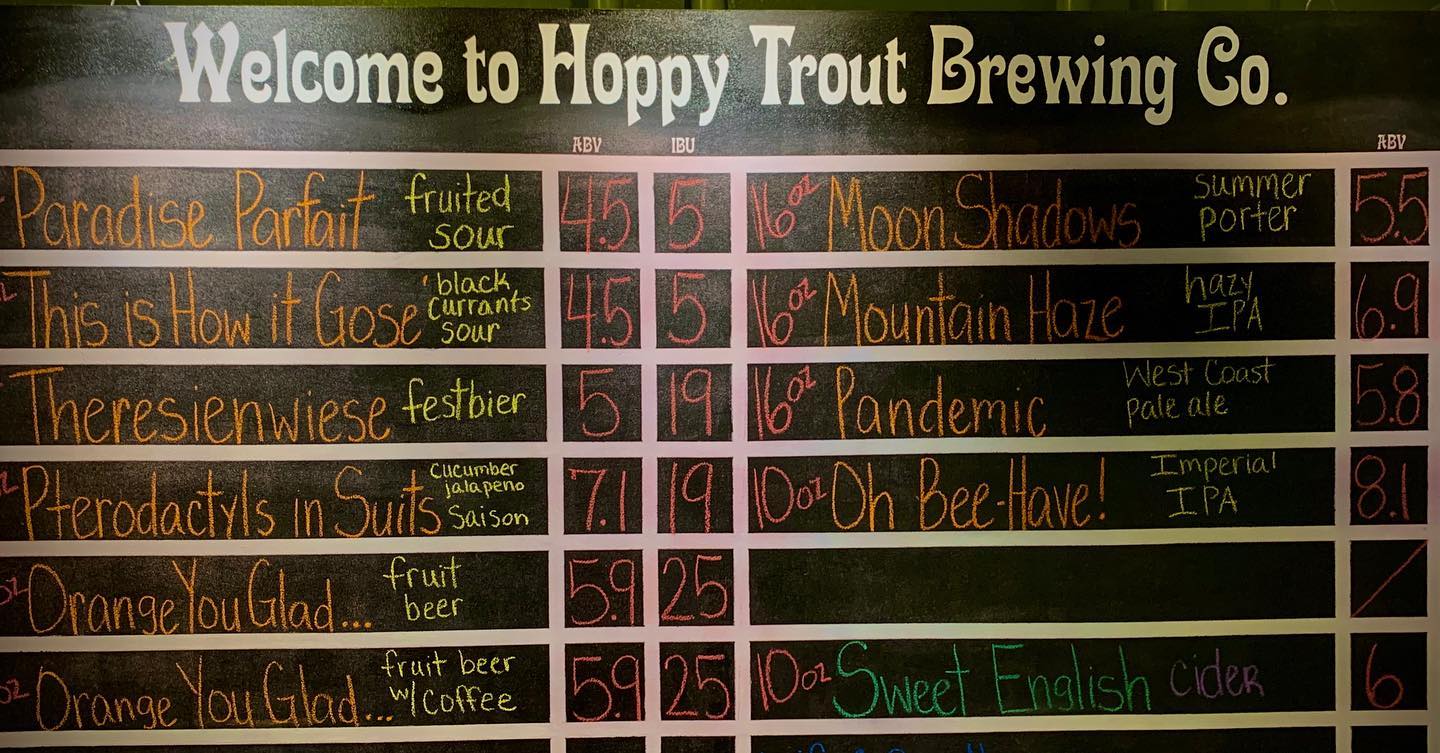 Welcome to Hoppy Trout Brewing Co.
ABV IBU ABV
Paradise Parfait fruited sour 4.5 5 16oz Moon Shadows summer porter 5.5
This is How it Gose black currants sour 4.5 5 16oz Mountain Haze hazy IPA 6.9
Theresienwiese festbier 5 19 16oz Pandemic West Coast pale ale 5.8
Pterodactyls in Suits Cucumber jalapeno Saison 7.1 19 10oz Oh Bee-Have! Imperial IPA 8.1
Orange You Glad... fruit beer 5.9 25 /
Orange You Glad... fruit beer w/Coffee 5.9 25 10oz Sweet English cider 6